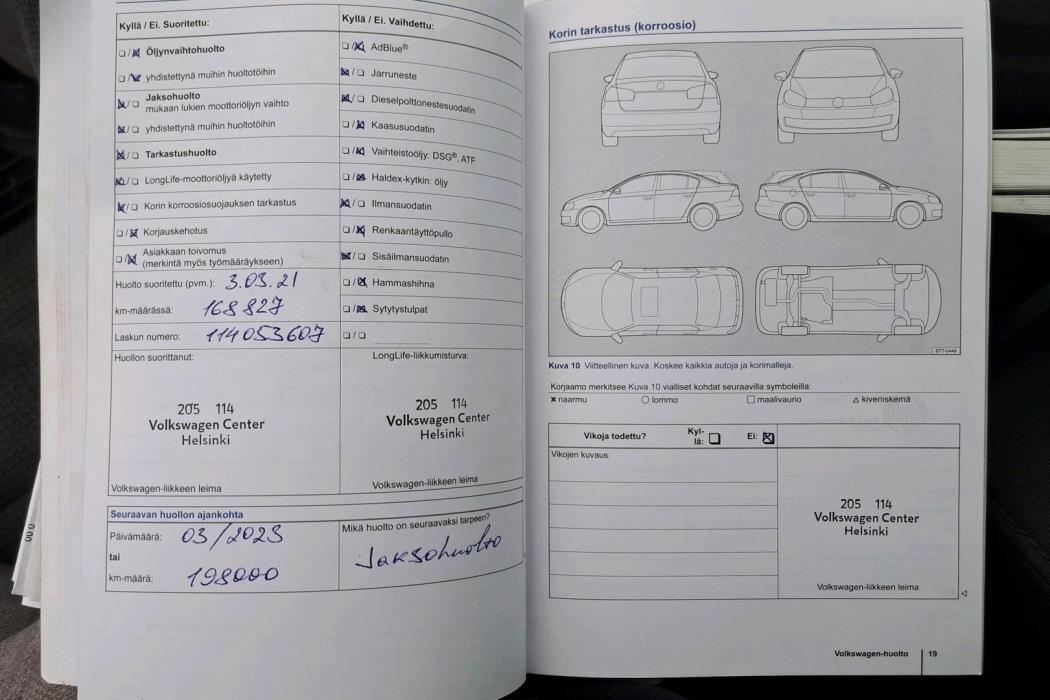 Kyllä / Ei. Suoritettu:
Öljynvaihtohuolto
yhdistettynä muihin huoltotöihin
Jaksohuolto
mukaan lukien moottoriöljyn vaihto
yhdistettynä muihin huoltotöihin
Tarkastushuolto
LongLife-moottoriöljyä käytetty
Korin korroosiosuojauksen tarkastus
Korjauskehotus
Asiakkaan toivomus
(merkintä myös työmääräykseen)
Huolto suoritettu (pvm.): 3.03.21
km-määrässä: 168 827
Laskun numero: 114053607
Huollon suorittanut:
205 114
Volkswagen Center
Helsinki
Volkswagen-liikkeen leima
Kyllä / Ei. Vaihdettu:
AdBlue®
Jarruneste
Dieselpolttonestesuodatin
Kaasusuodatin
Vaihteistoöljy: DSG®, ATF
Haldex-kytkin: öljy
Ilmansuodatin
Renkaantäyttöpullo
Sisäilmansuodatin
Hammashihna
Sytytystulpat
LongLife-liikkumisturva:
205 114
Volkswagen Center
Helsinki
Volkswagen-liikkeen leima
Seuraavan huollon ajankohta
Päivämäärä: 03/2023
tai
km-määrä: 198000
Mikä huolto on seuraavaksi tarpeen?
Jaksohuolto
Korin tarkastus (korroosio)
BTT-0449
Kuva 10 Viitteellinen kuva. Koskee kaikkia autoja ja korimalleja.
Korjaamo merkitsee Kuva 10 vialliset kohdat seuraavilla symboleilla:
× naarmu ○ lommo □ maalivaurio △ kiveniskemä
Vikoja todettu? Kyl-
lä: Ei:
Vikojen kuvaus:
205 114
Volkswagen Center
Helsinki
Volkswagen-liikkeen leima
Volkswagen-huolto 19